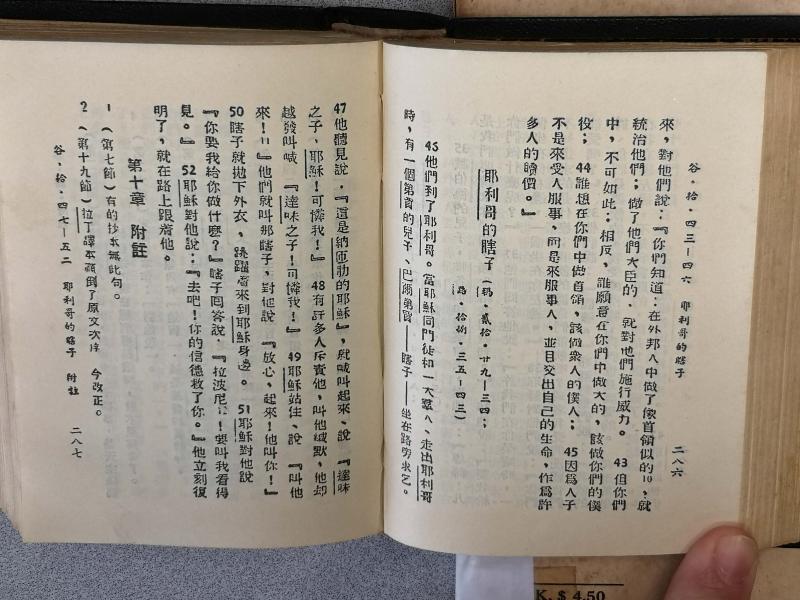 谷．拾．四三－四六　耶利哥的瞎子　二八六
來，對他們說：『你們知道：在外邦人中做了像首領似的10，就
統治他們；做了他們大臣的，就對他們施行威力。43但你們
中，不可如此；相反，誰願意在你們中做大的，該做你們的僕
役；44誰想在你們中做首領，該做衆人的僕人；45因爲人子
不是來受人服事，而是來服事人，並且交出自己的生命，作爲許
多人的贖價。』
耶利哥的瞎子（瑪．貳拾．廿九－三四；
路．拾捌．三五－四三）
46他們到了耶利哥。當耶穌同門徒和一大羣人，走出耶利哥
時，有一個第買的兒子、巴爾第買——瞎子——坐在路旁求乞。
47他聽見說．『這是納匝肋的耶穌』，就喊叫起來、說　『達味
之子、耶穌！可憐我！』48有許多人斥責他，叫他緘默，他却
越發叫喊　『達味之子！可憐我！』49耶穌站住、說　『叫他
來！』他們就叫那瞎子，對他說　『放心，起來！他叫你！』
50瞎子就拋下外衣，跳躍着來到耶穌身邊。51耶穌對他說
『你要我給你做什麼？』瞎子回答說．『拉波尼！要叫我看得
見。』52耶穌對他說：『去吧！你的信德救了你。』他立刻復
明了，就在路上跟着他。
第十章　附註
1（第七節）有的抄本無此句。
2（第十九節）拉丁譯本顚倒了原文次序　今改正。
谷．拾．四七－五二　耶利哥的瞎子　附註　二八七
K. $ 4.50